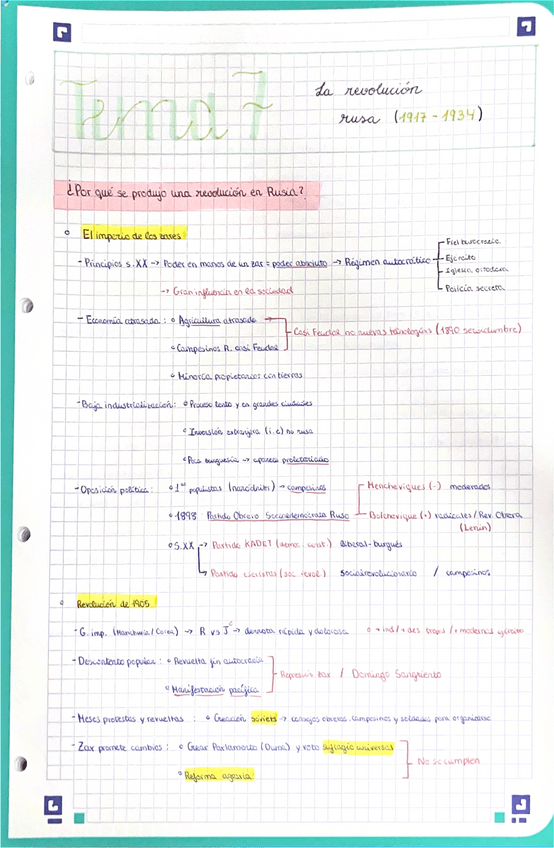 Tema 7
La revolución
rusa (1917 - 1934)
¿Por qué se produjo una revolución en Rusia?
El imperio de los zares
- Principios s.XX → Poder en manos de un zar = poder absoluto → Régimen autocrático
Fiel burocracia
Ejército
Iglesia ortodoxa
Policía secreta
→ Gran influencia en la sociedad
- Economía atrasada : Agricultura atrasada
Casi Feudal no nuevas
Campesinos R. casi Feudal
Minoría propietarios con tierras
- Baja industrialización: Proceso lento y en grandes ciudades
Inversión extranjera no rusa
Poca burguesía → aparece proletariado
- Oposición política: 1os populistas → campesinos
1898 Partido Obrero Socialdemócrata Ruso
Mencheviques (-) moderados
Bolchevique (+) radicales / Rev. Obrera
(Lenin)
S.XX → Partido KADET liberal-burgués
Partido socialrevolucionario / campesinos
Revolución de 1905
- G. imp. (Manchuria/Corea) → R vs J → derrota rápida y dolorosa
- Descontento popular : Revuelta fin autocracia
Manifestación pacífica
Represión zar / Domingo Sangriento
- Meses protestas y revueltas : Creación soviets → consejos obreros, campesinos y soldados para organizarse
- Zar promete cambios : Crear Parlamento (Duma) y voto sufragio universal
Reforma agraria
No se cumplen